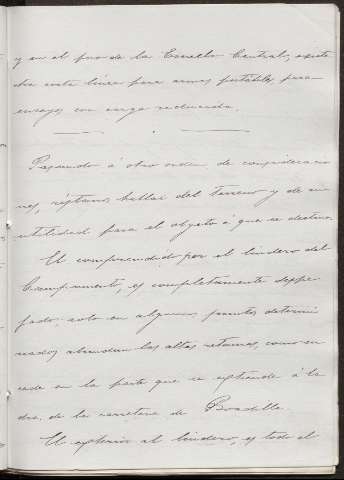 y en el foso de la Escuela Central, existe
otra corta linea para armas portátiles, para
ensayos con carga reducida.
Pasando á otro orden de consideracio
nes, réstanos hablar del terreno y de su
utilidad para el objeto á que se destina.
El comprendido por el lindero del
Campamento, es completamente despe
jado; solo en algunos puntos determi
nados abundan las altas retamas, como su
cede en la parte que se extiende á la
dra. de la carretera de Boadilla.
El exterior al lindero, es todo el